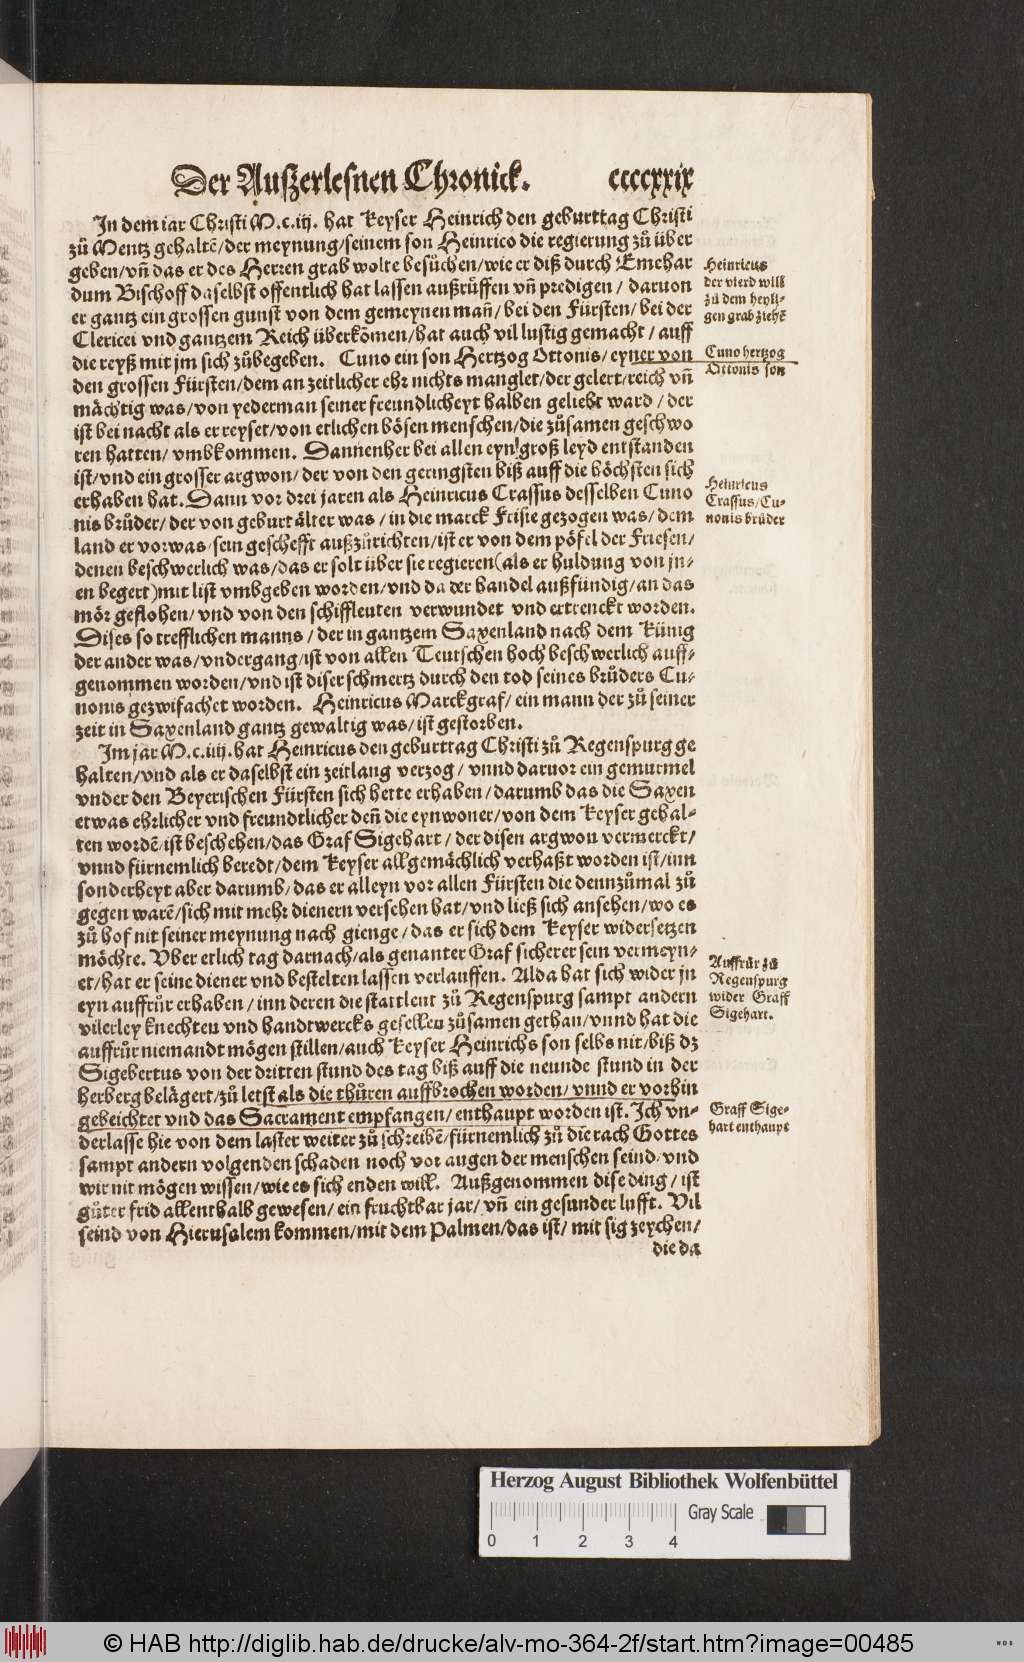 Der Außerlesnen Chronick. ccccxxix
In dem iar Christi M.c.iij. hat Keyser Heinrich den geburttag Christi
zů Mentz gehaltē/der meynung/seinem son Heinrico die regierung zů über
geben/vñ das er des Herren grab wolte besůchen/wie er diß durch Emehar
dum Bischoff daselbst offentlich hat lassen außrůffen vñ predigen/ daruon
er gantz ein grossen gunst von dem gemeynen mañ/bei den Fürsten/bei der
Clericei vnd gantzem Reich überkōmen/hat auch vil lustig gemacht/auff
die reyß mit jm sich zůbegeben. Cuno ein son Hertzog Ottonis/eyner von
den grossen Fürsten/dem an zeitlicher ehr nichts manglet/der gelert/reich vñ
mächtig was/von yederman seiner freundlicheyt halben geliebt ward/der
ist bei nacht als er reyset/von etlichen bösen menschen/die zůsamen geschwo
ren hatten/vmbkommen. Dannenher bei allen eyn groß leyd entstanden
ist/vnd ein grosser argwon/der von den geringsten biß auff die höchsten sich
erhaben hat. Dann vor drei jaren als Heinricus Crassus desselben Cuno
nis brůder/der von geburt älter was/in die marck Frisie gezogen was/dem
land er vorwas/sein gescheftt außzůrichten/ist er von dem pöfel der Friesen/
denen beschwerlich was/das er solt über sie regieren(als er huldung von jn-
en begert)mit list vmbgeben worden/vnd da der handel außfündig/an das
mör geflohen/vnd von den schiffleuten verwundet vnd ertrenckt worden.
Dises so trefflichen manns/der in gantzem Saxenland nach dem Künig
der ander was/vndergang/ist von allen Teutschen hoch beschwerlich auff-
genommen worden/vnd ist diser schmertz durch den tod seines brůders Cu-
nonis gezwifachet worden. Heinricus Marckgraf/ein mann der zů seiner
zeit in Saxenland gantz gewaltig was/ist gestorben.
Im jar M.c.iiij. hat Heinricus den geburttag Christi zů Regenspurg ge
halten/vnd als er daselbst ein zeitlang verzog/vnnd daruor ein gemurmel
vnder den Beyerischen Fürsten sich hette erhaben/darumb das die Saxen
etwas ehrlicher vnd freundtlicher deñ die eynwoner/von dem Keyser gehal-
ten wordē/ist beschehen/das Graf Sigehart/der disen argwon vermerckt/
vnnd fürnemlich beredt/dem Keyser allgemächlich verhaßt worden ist/inn
sonderheyt aber darumb/das er alleyn vor allen Fürsten die dennzůmal zů
gegen warē/sich mit mehr dienern versehen hat/vnd ließ sich ansehen/wo es
zů hof nit seiner meynung nach gienge/das er sich dem Keyser widersetzen
möchte. Vber etlich tag darnach/als genanter Graf sicherer sein vermeyn-
et/hat er seine diener vnd bestelten lassen verlauffen. Alda hat sich wider jn
eyn auffrůr erhaben/inn deren die stattleut zů Regenspurg sampt andern
vilerley knechten vnd handtwercks gesellen zůsamen gethan/vnnd hat die
auffrůr niemandt mögen stillen/auch Keyser Heinrichs son selbs nit/biß dz
Sigebertus von der dritten stund des tag biß auff die neunde stund in der
herberg belägert/zů letst als die thüren auffbrochen worden/vnnd er vorhin
gebeichtet vnd das Sacrament empfangen/enthaupt worden ist. Ich vn-
derlasse hie von dem laster weiter zů schreibē/fürnemlich zů die rach Gottes
sampt andern volgenden schaden noch vor augen der menschen seind/vnd
wir nit mögen wissen/wie es sich enden will. Außgenommen dise ding/ist
gůter frid allenthalb gewesen/ein fruchtbar jar/vñ ein gesunder lufft. Vil
seind von Hierusalem kommen/mit dem Palmen/das ist/mit sig zeychen/
die da
Heinricus
der vierd will
zů dem heyli-
gen grab ziehē
Cuno hertzog
Ottonis son
Heinricus
Crassus/Cu-
nonis brůder
Auffrůr zů
Regenspurg
wider Graff
Sigehart.
Graff Sige-
hart enthaupt
Herzog August Bibliothek Wolfenbüttel
Gray Scale
0 1 2 3 4
© HAB http://diglib.hab.de/drucke/alv-mo-364-2f/start.htm?image=00485